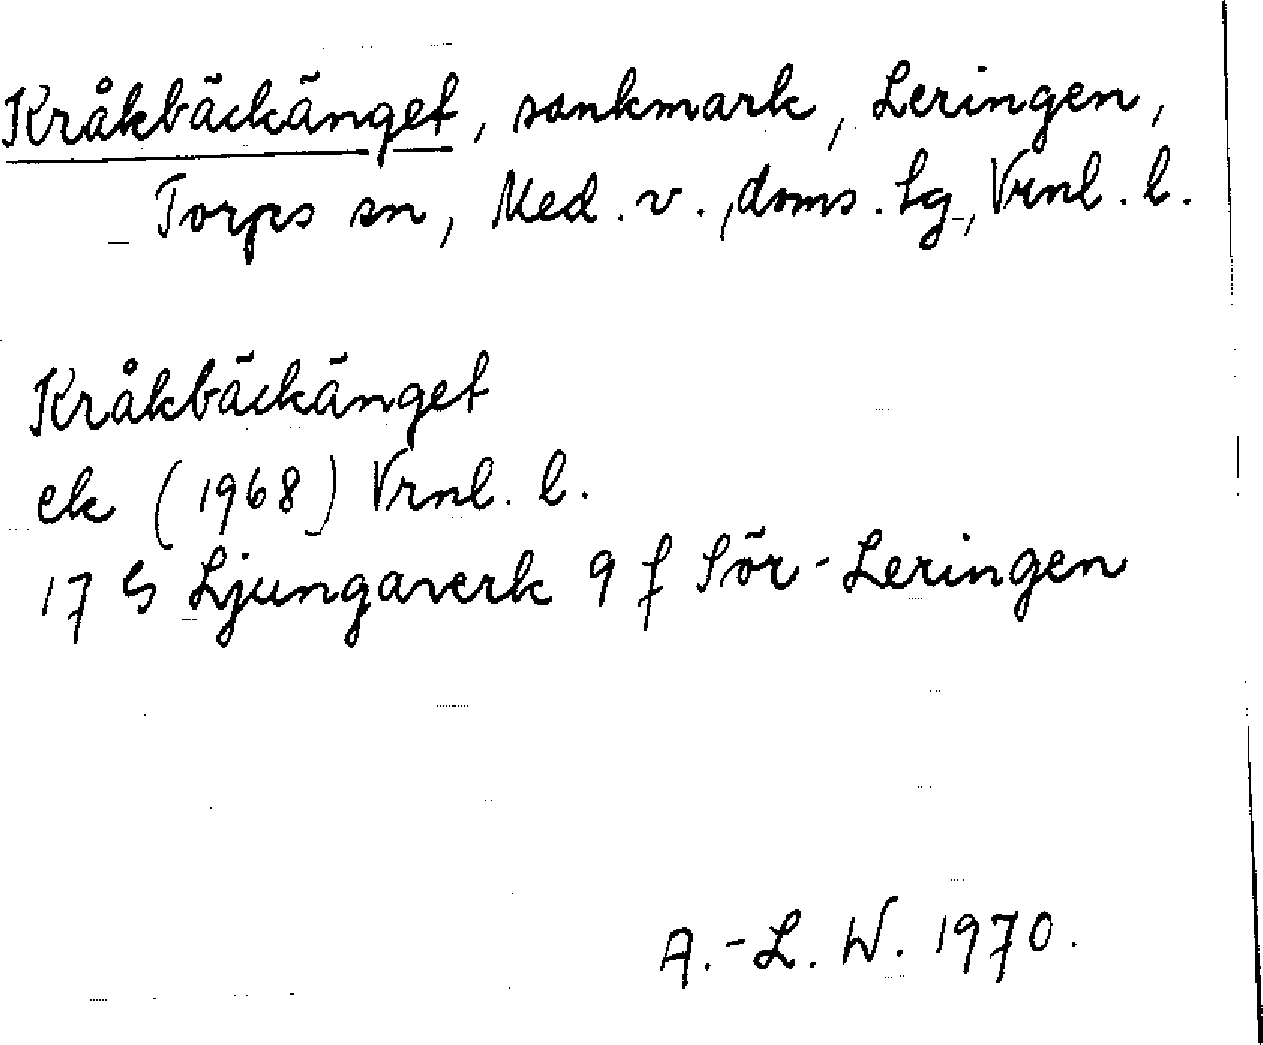 Kråkbäckänget, sankmark, Leringen,
Torps sn, Med. v., doms. Lg, Vrnl. l.
Kråkbäckänget
ek (1968) Vrnl. l.
17 G Ljungaverk 9 f Sör-Leringen
A.-L. W. 1970.